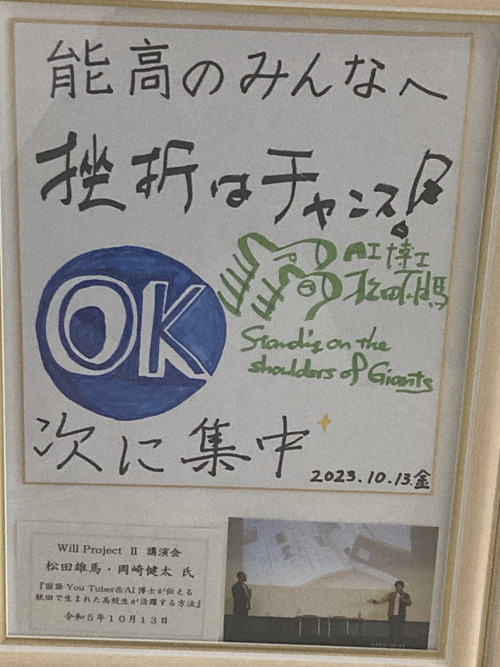 能高のみんなへ
挫折はチャンス!
OK
AI博士
松田雄馬
Standing on the
shoulders of Giants
次に集中
2023.10.13.金
Will Project Ⅱ 講演会
松田雄馬・岡崎健太 氏
『国語 You Tuber&AI 博士が伝える
秋田で生まれた高校生が活躍する方法』
令和5年10月13日